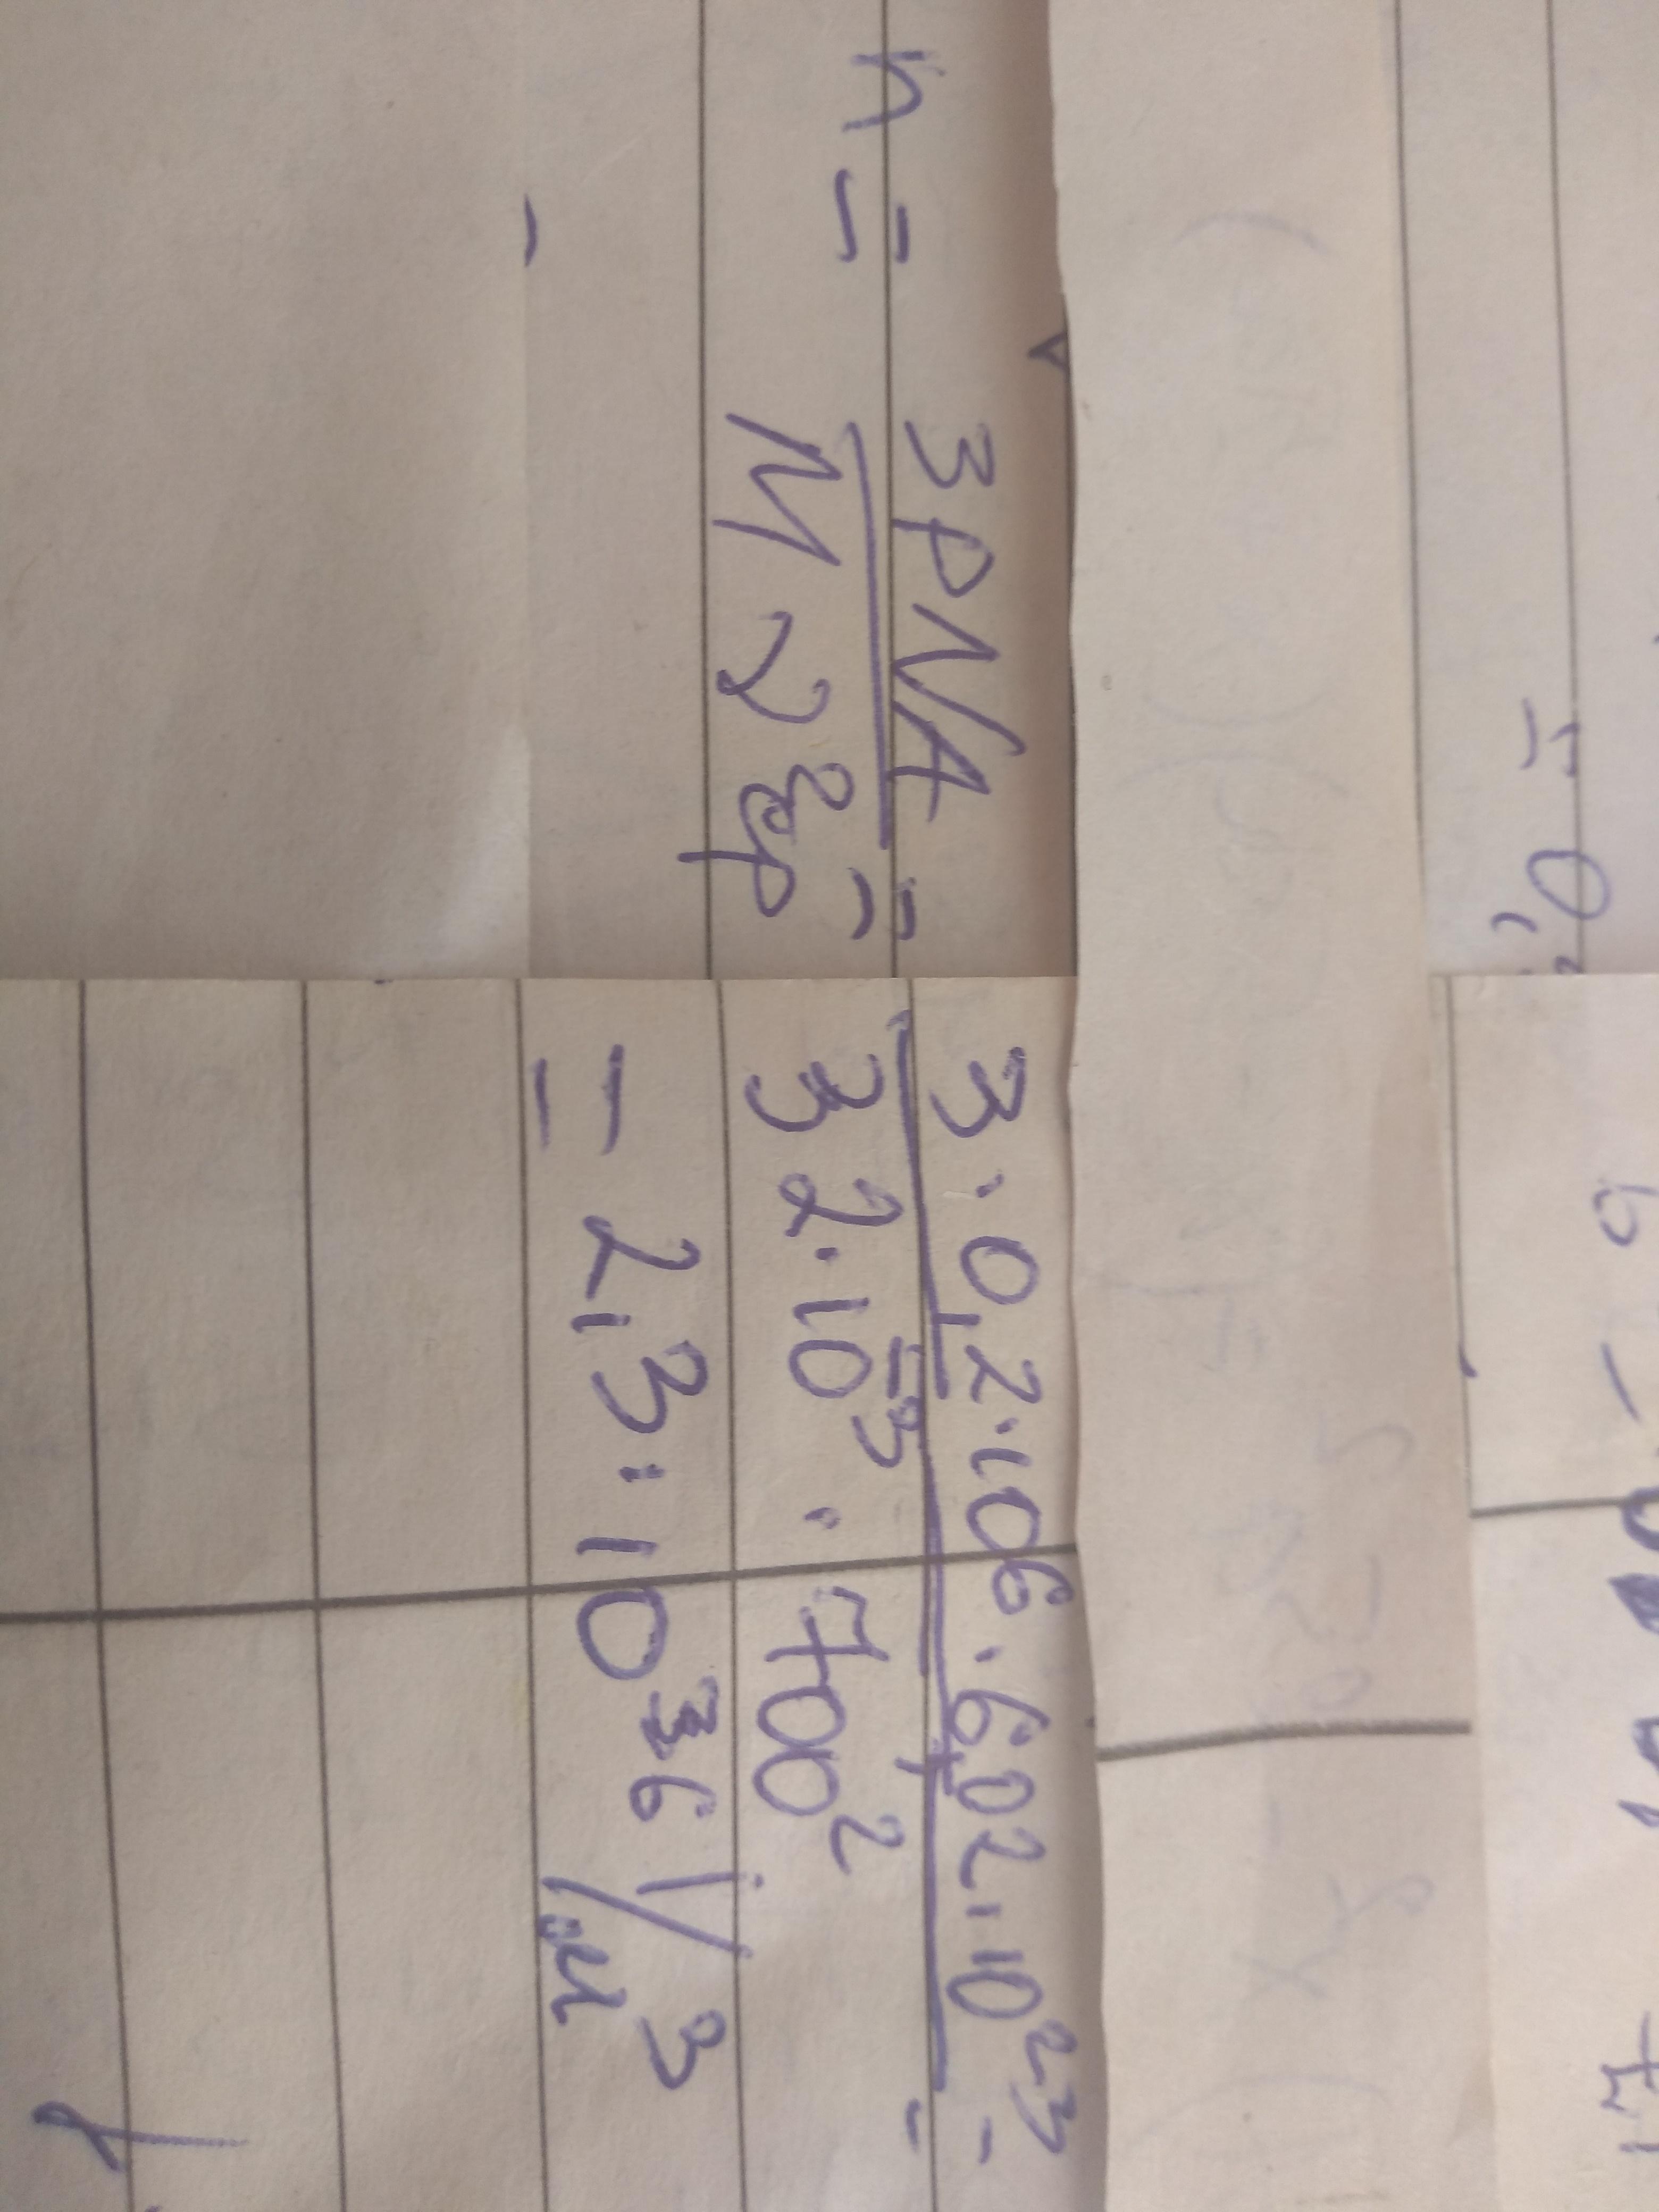 n = 3pNA / M υ²ср = 3·0,2·10⁶·6,02·10²³ / 32·10⁻³·700² =
= 2,3·10³⁶ 1/м³